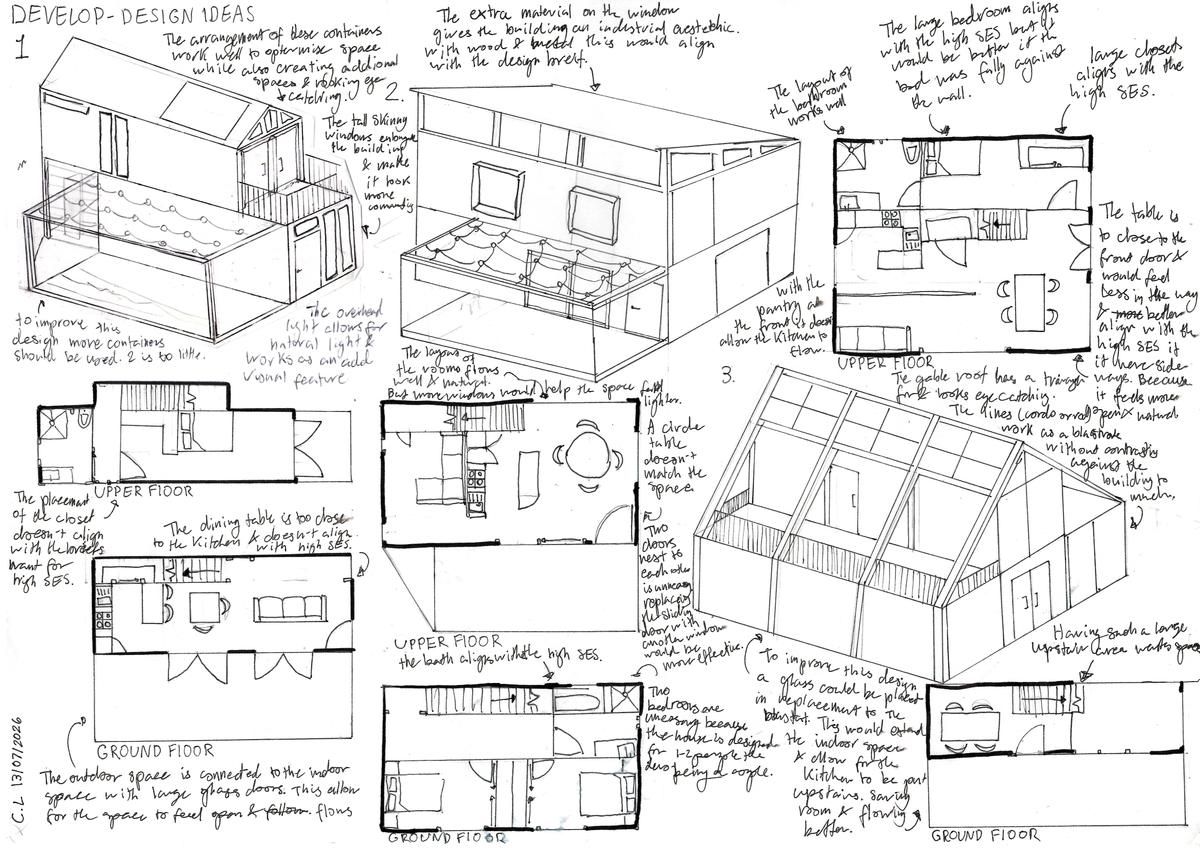 DEVELOP-DESIGN IDEAS
1
The arrangement of these containers
work well to optermise space
while also creating addional
spaces & looking eye
catching.
The tall skinny
windows enlongate
the building
& make
it look
more
to improve this
design more containers
should be used. 2 is to little.
The overhead
light allows for
natural light &
works as an add
visual feature
UPPER FLOOR
The placement
of the closet
doesn't align
with the
want for
high SES.
The dining table is too close
to the Kitchen & doesn't align
with high SES
GROUND FLOOR
The outdoor space is connected to the indoor
space with large glass doors. This allow
for the space to feel open & flows
C.L 13/07/2026
2.
The extra material on the window
gives the building an industrial aestethic.
with wood & metal this would align
with the design breif.
The layout of
the rooms flows
well & natural.
But more windows would help the space feel
lighter.
A circle
table
doesn't
match the
space
Two
doors
next to
each other
is unnessary
replacing
the sliding
door with
another window
would be
more effective.
UPPER FLOOR
the bath aligns with the high SES.
Two
bedrooms are
unessary because
the house is designed
for 1-2 people the
being a couple.
GROUND FLOOR
The layout of
the bathroom
works well
The large bedroom aligns
with the high SES but it
would be better if the
bed was fully against
the wall.
large closet
aligns with the
high SES.
The table is
to close to the
front door &
would feel
less in the way
& more better
align with the
high SES if
it were side-
ways. Because
it feels more
open & natural
with the
pantry at
the front is doesn't
allow the kitchen to
flow.
UPPER FLOOR
3.
The gable roof has a triangle
& looks eye catching.
The lines
work as a
without contrasting
against the
building to
much.
To improve this design
a glass could be placed
in replacement to the
This would extend
the indoor space
& allow for the
Kitchen to be put
upstairs. Saving
room & flowing
better.
Having such a large
upstair area wastes space
GROUND FLOOR